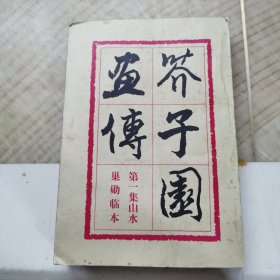 芥子園
畫傳
第一集山水
巢勛临本